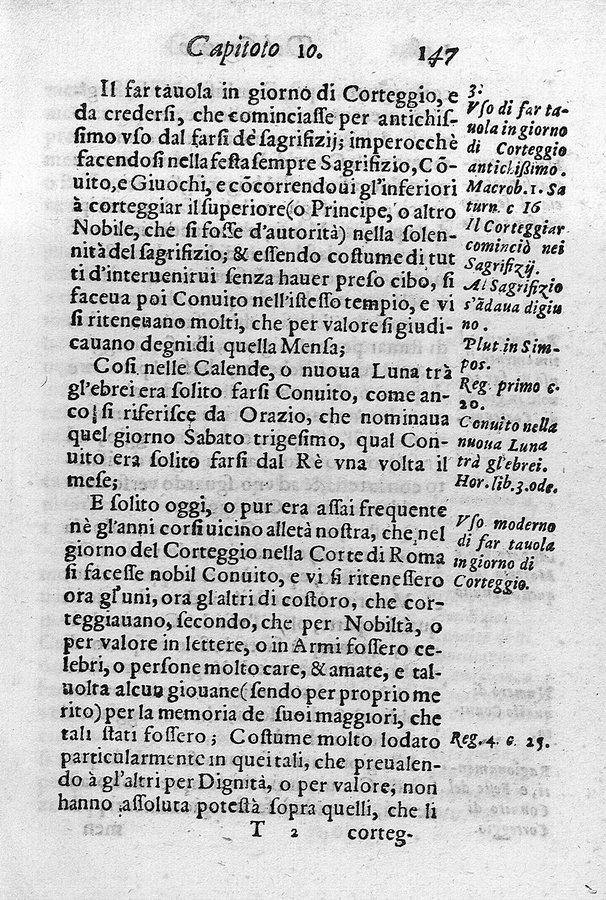 Capitolo 10. 147
Il far tauola in giorno di Corteggio, e
da crederſi, che cominciaſſe per antichiſ-
ſimo vſo dal farſi de ſagrifizij; imperocchè
facendoſi nella feſta ſempre Sagrifizio, Cō-
uito, e Giuochi, e cōcorrendoui gl'inferiori
à corteggiar il ſuperiore (o Principe, o altro
Nobile, che ſi foſſe d'autorità) nella ſolen-
nità del ſagrifizio; & eſſendo coſtume di tut
ti d'interuenirui ſenza hauer preſo cibo, ſi
faceua poi Conuito nell'iſteſſo tempio, e vi
ſi riteneuano molti, che per valore ſi giudi-
cauano degni di quella Menſa;
Coſi nelle Calende, o nuoua Luna trà
gl'ebrei era ſolito farſi Conuito, come an-
co ſi riferiſce da Orazio, che nominaua
quel giorno Sabato trigeſimo, qual Con-
uito era ſolito farſi dal Rè vna volta il
meſe;
E ſolito oggi, o pur era aſſai frequente
nè gl'anni corſi uicino alletà noſtra, che nel
giorno del Corteggio nella Corte di Roma
ſi faceſſe nobil Conuito, e vi ſi riteneſſero
ora gl'uni, ora gl'altri di coſtoro, che cor-
teggiauano, ſecondo, che per Nobiltà, o
per valore in lettere, o in Armi foſſero ce-
lebri, o perſone molto care, & amate, e tal-
uolta alcun giouane (ſendo per proprio me
rito) per la memoria de ſuoi maggiori, che
tali ſtati foſſero; Coſtume molto lodato
particolarmente in quei tali, che preualen-
do à gl'altri per Dignità, o per valore, non
hanno aſſoluta poteſtà ſopra quelli, che li
T 2 corteg-
3.
Vſo di far ta-
uola in giorno
di Corteggio
antichiſſimo.
Macrob. 1. Sa
turn. c 16
Il Corteggiar
cominciò nei
Sagrifizij.
Al Sagrifizio
s'ādaua digiu
no.
Plut. in Sim-
pos.
Reg. primo c.
20.
Conuito nella
nuoua Luna
trà gl'ebrei.
Hor. lib. 3. ode.
Vſo moderno
di far tauola
in giorno di
Corteggio.
Reg. 4. c. 25.